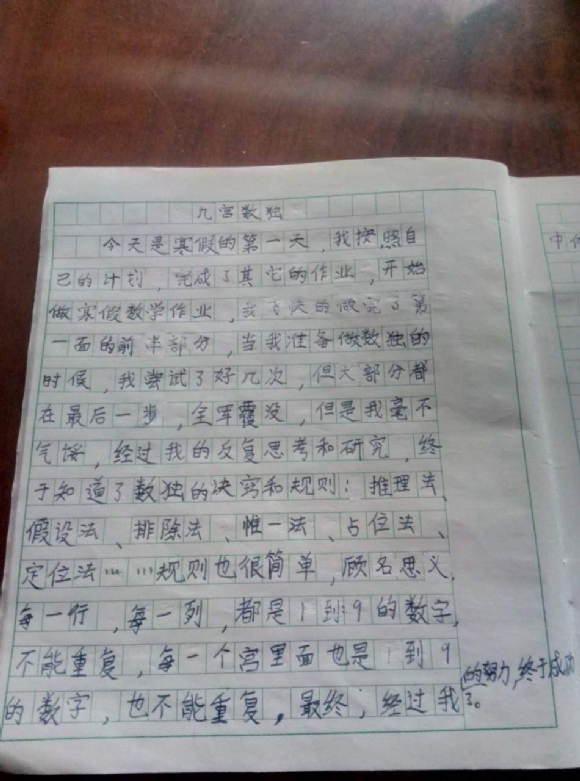 九宫数独
今天是寒假的第一天，我按照自
己的计划，完成了其它的作业，开始
做寒假数学作业，我飞快的做完了第
一面的前半部分，当我准备做数独的
时候，我尝试了好几次，但大部分都
在最后一步，全军覆没，但是我毫不
气馁，经过我的反复思考和研究，终
于知道了数独的决窍和规则：推理法、
假设法、排除法、惟一法、占位法、
定位法……规则也很简单，顾名思义，
每一行，每一列，都是1到9的数字，
不能重复，每一个宫里面也是1到9
的数字，也不能重复，最终，经过我
的努力，终于成功
了。
中